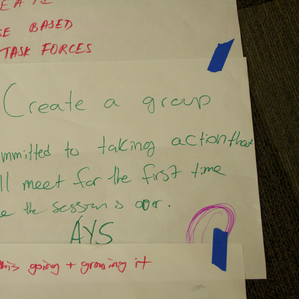 BASED
TASK FORCES
Create a group
to taking action that
meet for the first time
the session is over.
AYS
going + growing it